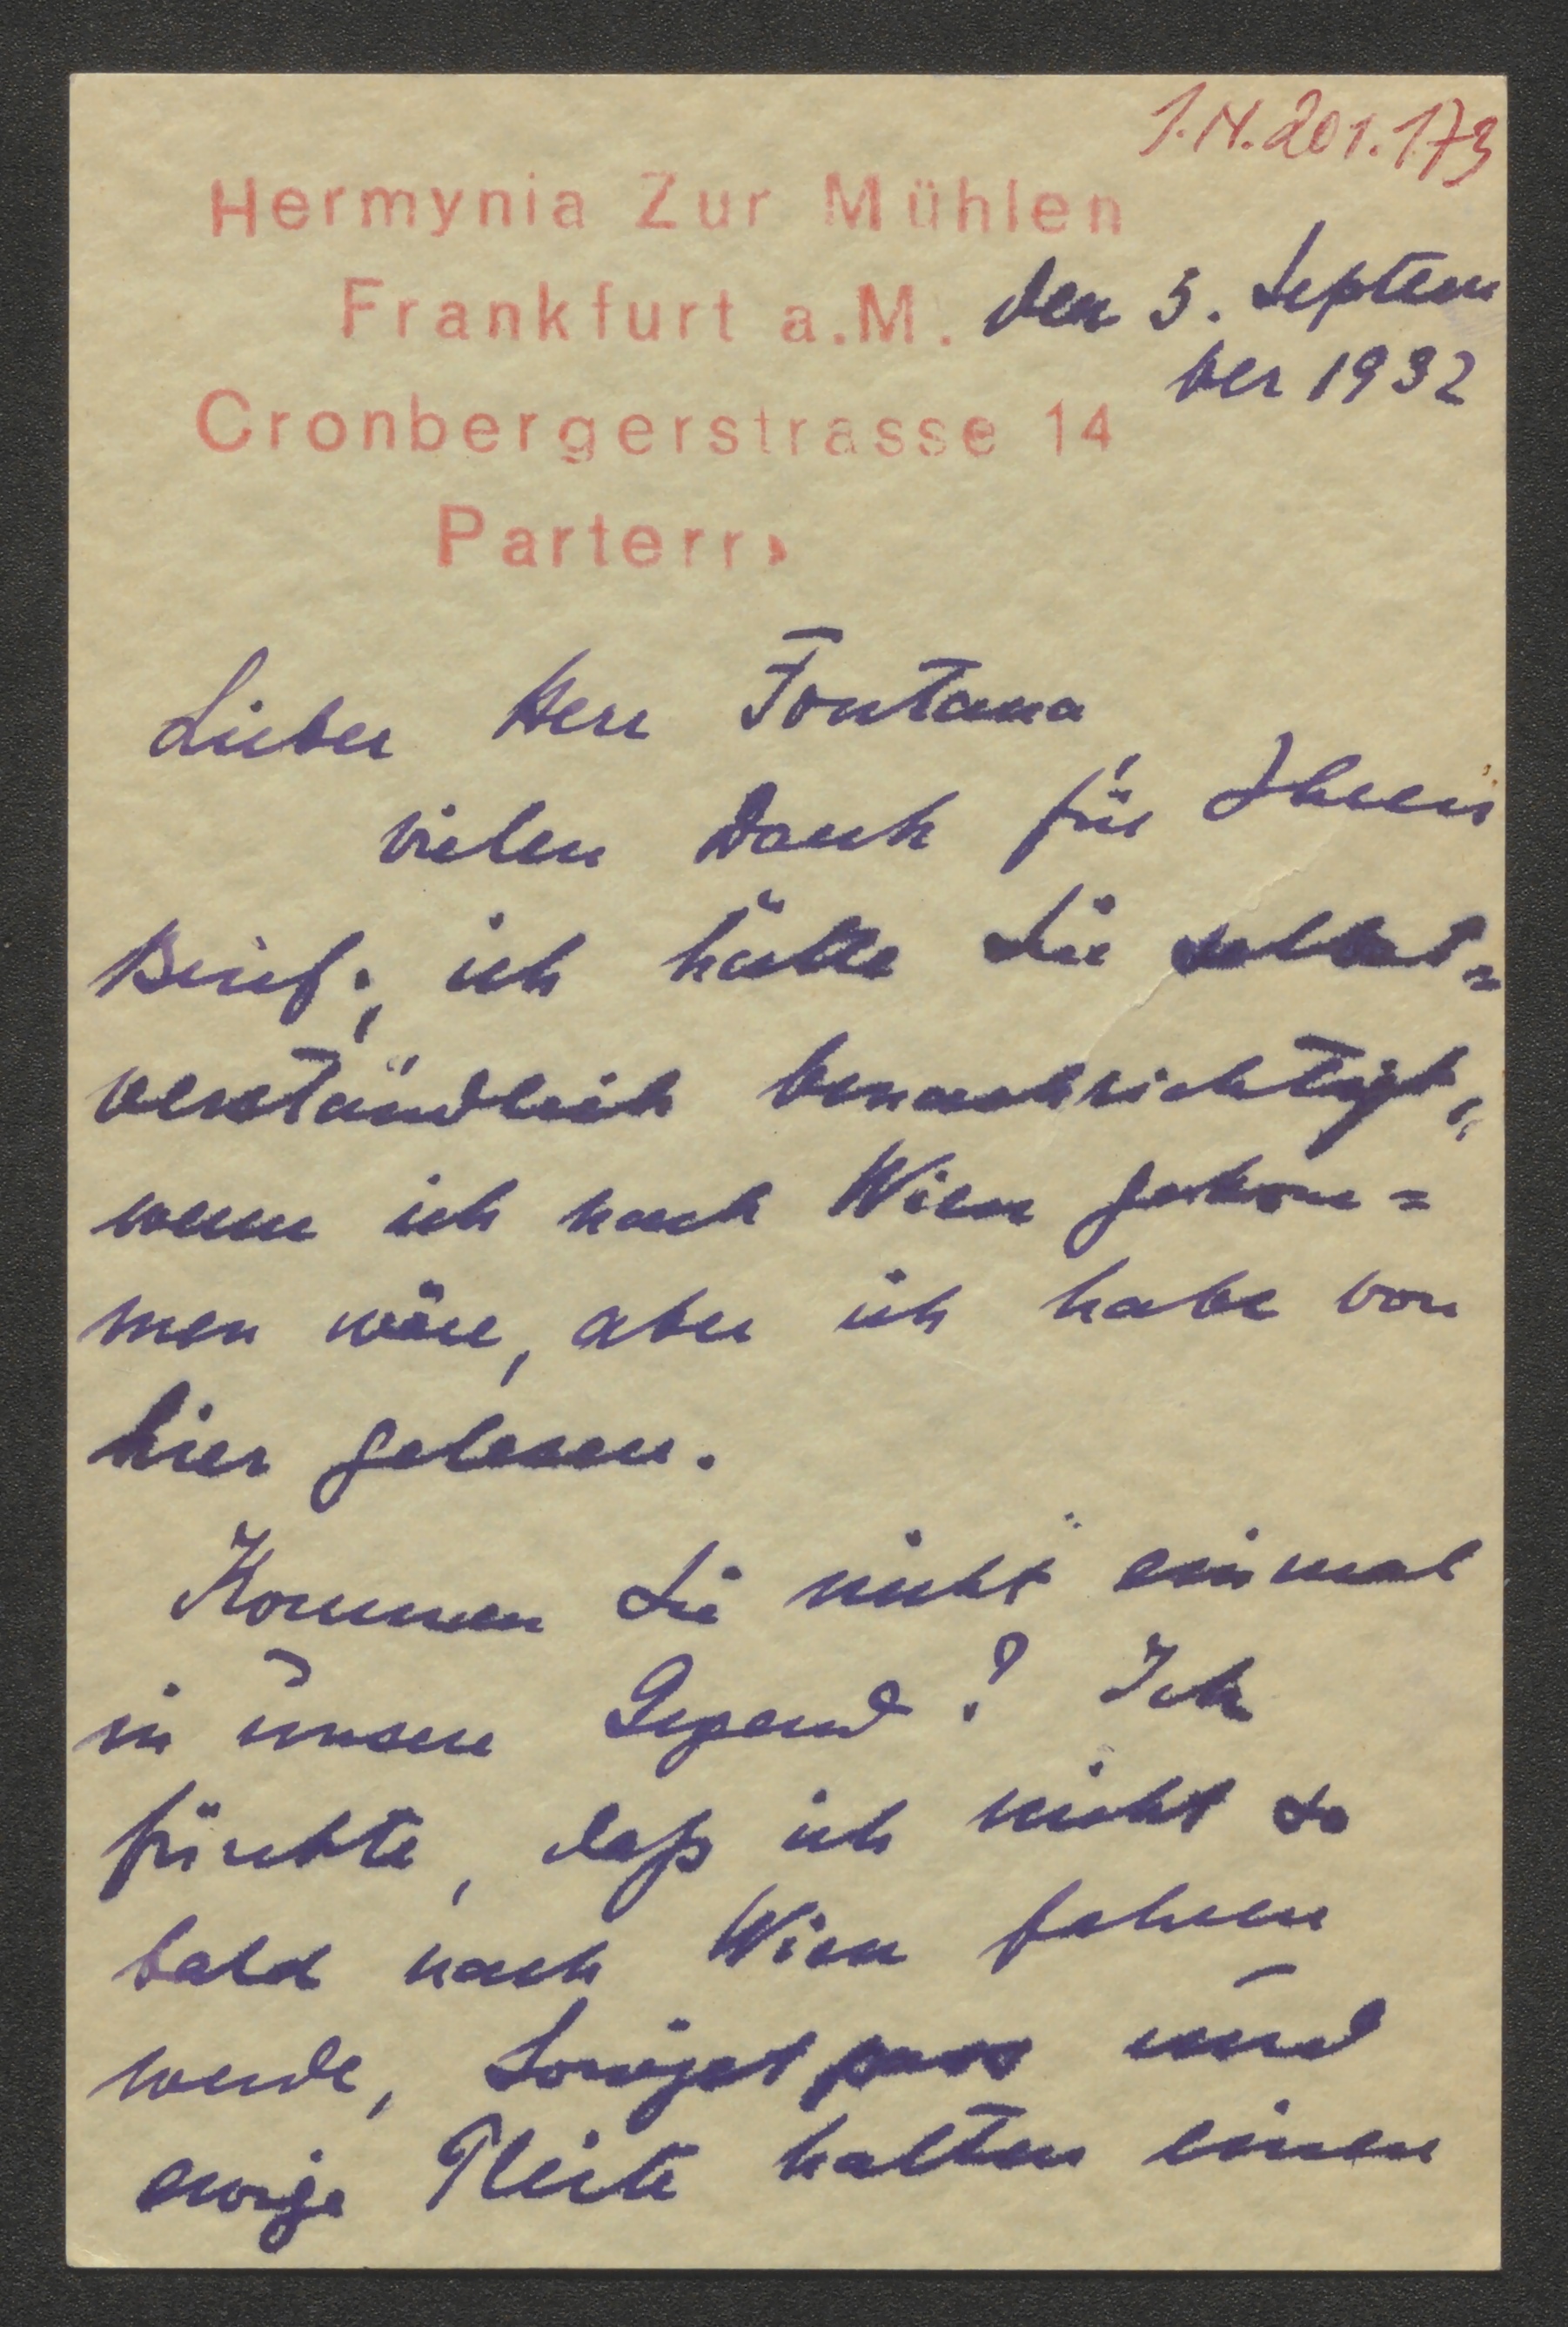 I.N.201.173
Hermynia Zur Mühlen
Frankfurt a.M. den 5. Septem
ber 1932
Cronbergerstrasse 14
Parterre
Lieber Herr Fontana,
vielen Dank für Ihren
Brief; ich hätte Sie selbst=
verständlich benachrichtigt,
wenn ich nach Wien gekom=
men wäre, aber ich habe von
hier gelesen.
Kommen Sie nicht einmal
in unsere Gegend? Ich
fürchte, daß ich nicht so
bald nach Wien fahren
werde, Sowjetpass und
ewige Pleite halten einen